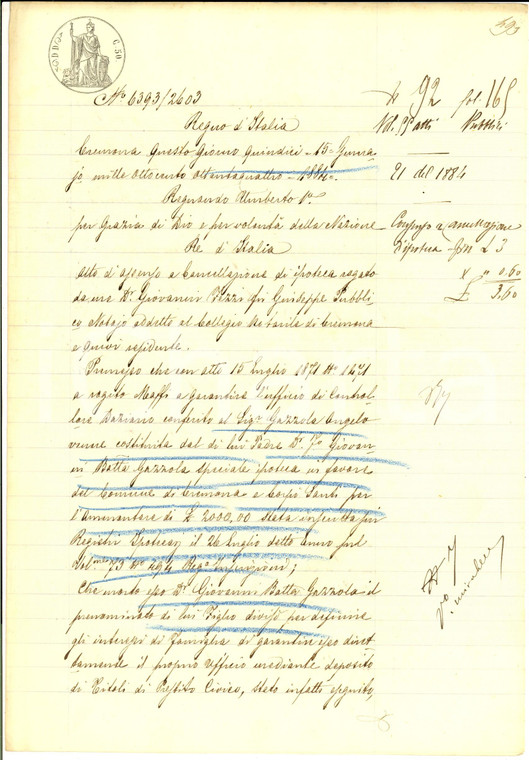 C. 50
No 6393/2603
No 92 fol. 165
Regno d'Italia
Ni. PP. atti Pubblici
Cremona questo Giorno quindici - 15 - Genna-
jo mille ottocento ottantaquattro - 1884 -
21 del 1884
Regnando Umberto Io
per Grazia di Dio e per volontà della Nazione
Rè d'Italia
ipoteca
3
Atto d'assenso a Cancellazione di ipoteca rogato
" 0.60
da me Dr Giovanni Fezzi fu Giuseppe Pubbli-
£ 3.60
co Notajo addetto al Collegio Notarile di Cremona
e quivi residente.
Premesso che con atto 15 Luglio 1871 No 1471
a rogito Maffi a garantire l'ufficio di Control-
lore Daziario conferito al Sigr Gazzola Angelo
venne costituita dal di lui Padre Dr Giovan-
ni Batta Gazzola speciale ipoteca in favore
del Comune di Cremona e Corpi Santi per
l'ammontare di £ 2000,00 stata inscritta sui
Registri Ipotecarj il 26 Luglio detto anno
Vol 73 No 494 Rega Inscrizioni;
Che morto esso Dr Giovanni Batta Gazzola il
prenominato di lui Figlio divisò per definire
gli interessi di Famiglia di garantire esso diret-
tamente il proprio Ufficio mediante deposito
di Titoli di Prestito Civico, stato infatti eseguito,